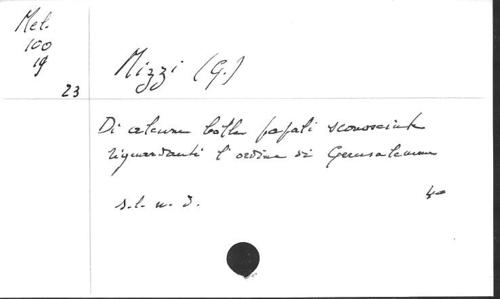 Mel.
100
19
23
Mizzi (G.)
Di alcune bolle papali sconosciute
riguardanti l'ordine di Gerusalemme
s.l.n.d.
4°